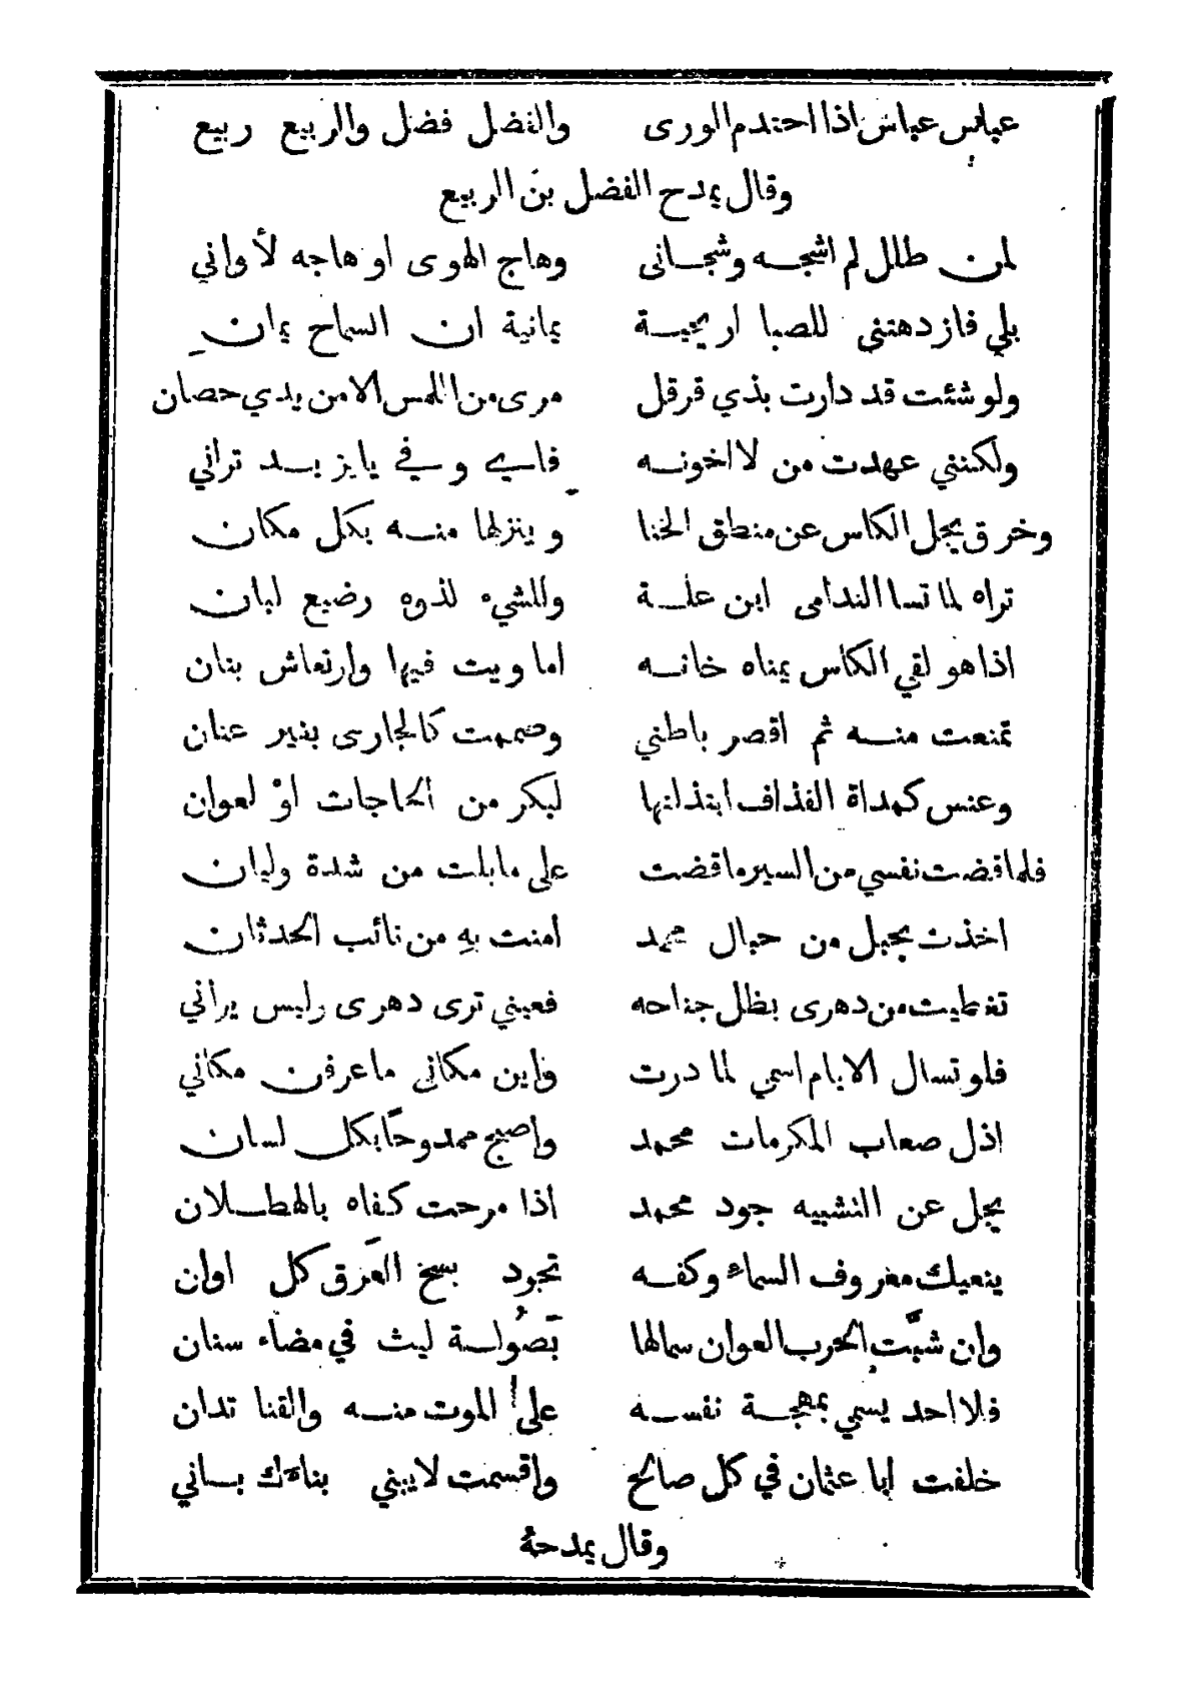 عباس عباس اذا احتدم الورى والفضل فضل والربيع ربيع
وقال يمدح الفضل بن الربيع
لمن طلل لم اشجه وشجانى وهاج الهوى او هاجه لأواني
بلي فازدهتني للصبا اريحية يمانية ان السماح يمانِ
ولو شئت قد دارت بذي قرقل مرى من اللمس الا من يدي حصان
ولكنني عهدت من لا اخونه فاي وفي يايزيد تراني
وخرق يجل الكاس عن منطق الخنا وينزلها منه بكل مكان
تراه لما تسا الندامى ابن علة وللشيء لذوه رضيع لبان
اذا هو لقي الكاس يمناه خانه اماويت فيها وارتعاش بنان
تمنعت منه ثم اقصر باطني وصممت كالجارى بغير عنان
وعنس كمداة القذاف ابتذلتها لبكر من الحاجات اوْ لعوان
فلما قضت نفسي من السير ما قضت على مابلت من شدة وليان
اخذت بحبل من حبال محمد امنت بهِ من نائب الحدثان
تغطيت من دهرى بظل جناحه فعيني ترى دهرى وليس يرآني
فلو تسال الايام اسمي لما درت واين مكانى ماعرفن مكاني
اذل صعاب المكرمات محمد واصبح ممدوحًا بكل لسان
يجل عن التشبيه جود محمد اذا مرحت كفاه بالهطلان
ينعيك معروف السماء وكفه تجود بسح العَرق كل اوان
وان شبَّت الحرب العوان سمالها بَصُولة ليث في مضاء سنان
فلا احد يسمي بمهجة نفسه على الموت منه والقنا تدان
خلفت ابا عثمان في كل صالح واقسمت لايبني بناءك باني
وقال يمدحهُ